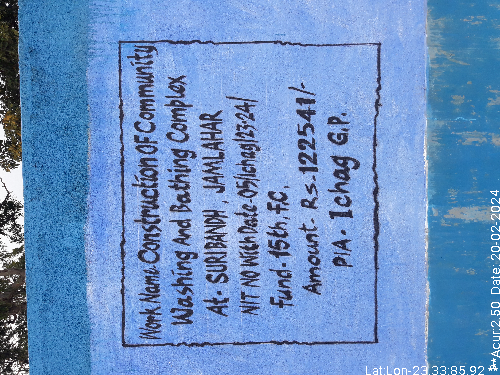 Work Name Construction OF Community
Washing And Bathing Complex
At- SURIBANDH, JAMLAHAR
NIT NO With Date-05/Ichag/23-24/
Fund-15th, F.C,
Amount- Rs-122541/-
PIA- Ichag G.P.
Lat:Lon-23 33:85 92
**Acur:2.50 Date, 20-02-2024